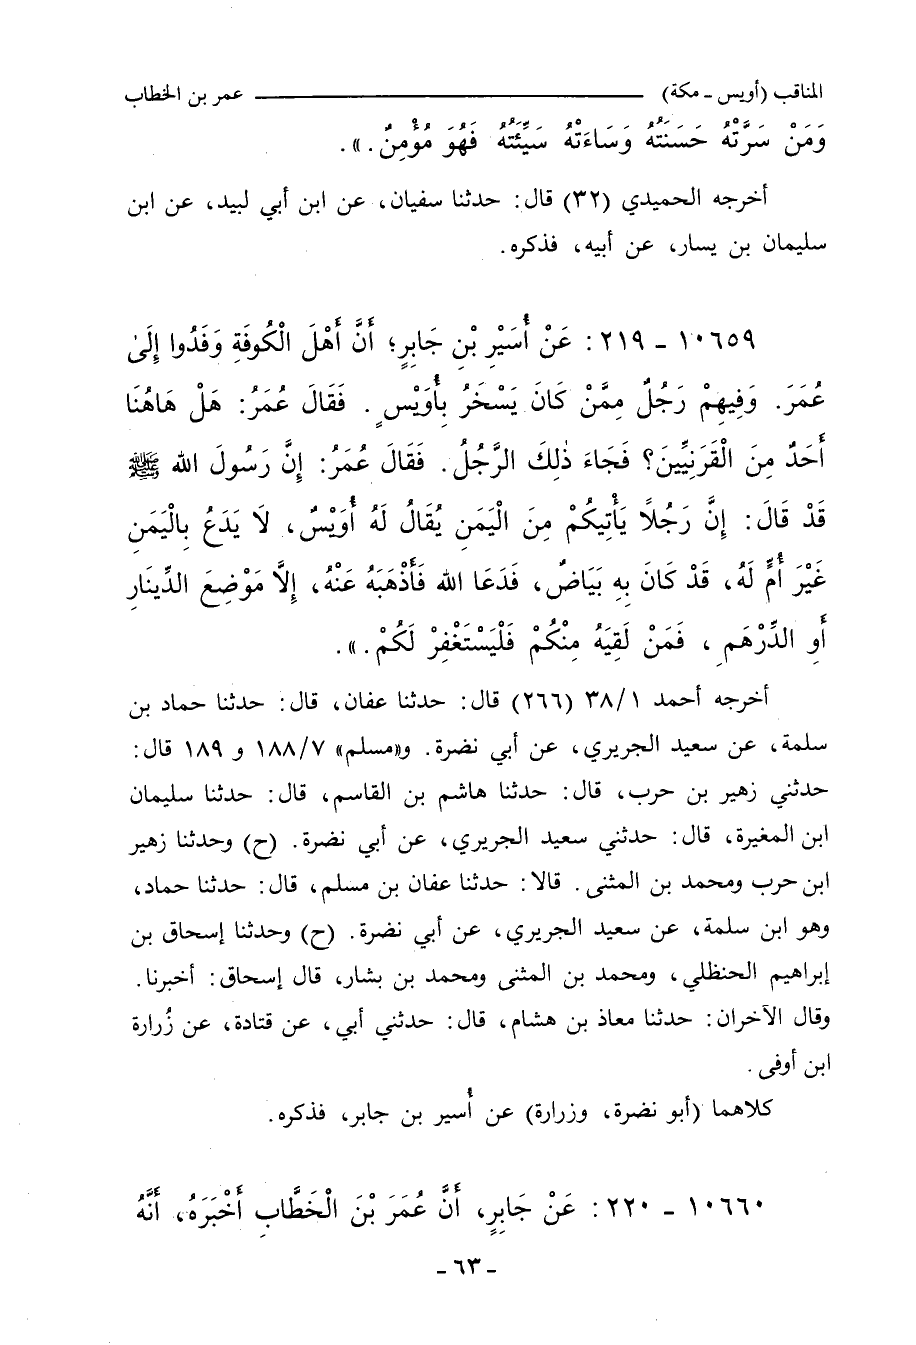 المناقب (أويس ـ مكة) ــــــــــــــــــــــــــــــــ عمر بن الخطاب
وَمَنْ سَرَّتْهُ حَسَنَتُهُ وَسَاءَتْهُ سَيِّئَتُهُ فَهُوَ مُؤْمِنٌ.».
أخرجه الحميدي (٣٢) قال: حدثنا سفيان، عن ابن أبي لبيد، عن ابن
سليمان بن يسار، عن أبيه، فذكره.
١٠٦٥٩ ـ ٢١٩: عَنْ أُسَيْرِ بْنِ جَابِرٍ؛ أَنَّ أَهْلَ الْكُوفَةِ وَفَدُوا إِلَىٰ
عُمَرَ. وَفِيهِمْ رَجُلٌ مِمَّنْ كَانَ يَسْخَرُ بِأُوَيْسٍ. فَقَالَ عُمَرُ: هَلْ هَاهُنَا
أَحَدٌ مِنَ الْقَرَنِيِّينَ؟ فَجَاءَ ذٰلِكَ الرَّجُلُ. فَقَالَ عُمَرُ: إِنَّ رَسُولَ الله ﷺ
قَدْ قَالَ: إِنَّ رَجُلًا يَأْتِيكُمْ مِنَ الْيَمَنِ يُقَالُ لَهُ أُوَيْسٌ، لَا يَدَعُ بِالْيَمَنِ
غَيْرَ أُمٍّ لَهُ، قَدْ كَانَ بِهِ بَيَاضٌ، فَدَعَا الله فَأَذْهَبَهُ عَنْهُ، إِلَّا مَوْضِعَ الدِّينَارِ
أَوِ الدِّرْهَمِ، فَمَنْ لَقِيَهُ مِنْكُمْ فَلْيَسْتَغْفِرْ لَكُمْ.».
أخرجه أحمد ٣٨/١ (٢٦٦) قال: حدثنا عفان، قال: حدثنا حماد بن
سلمة، عن سعيد الجريري، عن أبي نضرة. و«مسلم» ١٨٨/٧ و ١٨٩ قال:
حدثني زهير بن حرب، قال: حدثنا هاشم بن القاسم، قال: حدثنا سليمان
ابن المغيرة، قال: حدثني سعيد الجريري، عن أبي نضرة. (ح) وحدثنا زهير
ابن حرب ومحمد بن المثنى. قالا: حدثنا عفان بن مسلم، قال: حدثنا حماد،
وهو ابن سلمة، عن سعيد الجريري، عن أبي نضرة. (ح) وحدثنا إسحاق بن
إبراهيم الحنظلي، ومحمد بن المثنى ومحمد بن بشار، قال إسحاق: أخبرنا.
وقال الآخران: حدثنا معاذ بن هشام، قال: حدثني أبي، عن قتادة، عن زُرارة
ابن أوفى.
كلاهما (أبو نضرة، وزرارة) عن أُسير بن جابر، فذكره.
١٠٦٦٠ ـ ٢٢٠: عَنْ جَابِرٍ، أَنَّ عُمَرَ بْنَ الْخَطَّابِ أَخْبَرَهُ، أَنَّهُ
ـ ٦٣ ـ